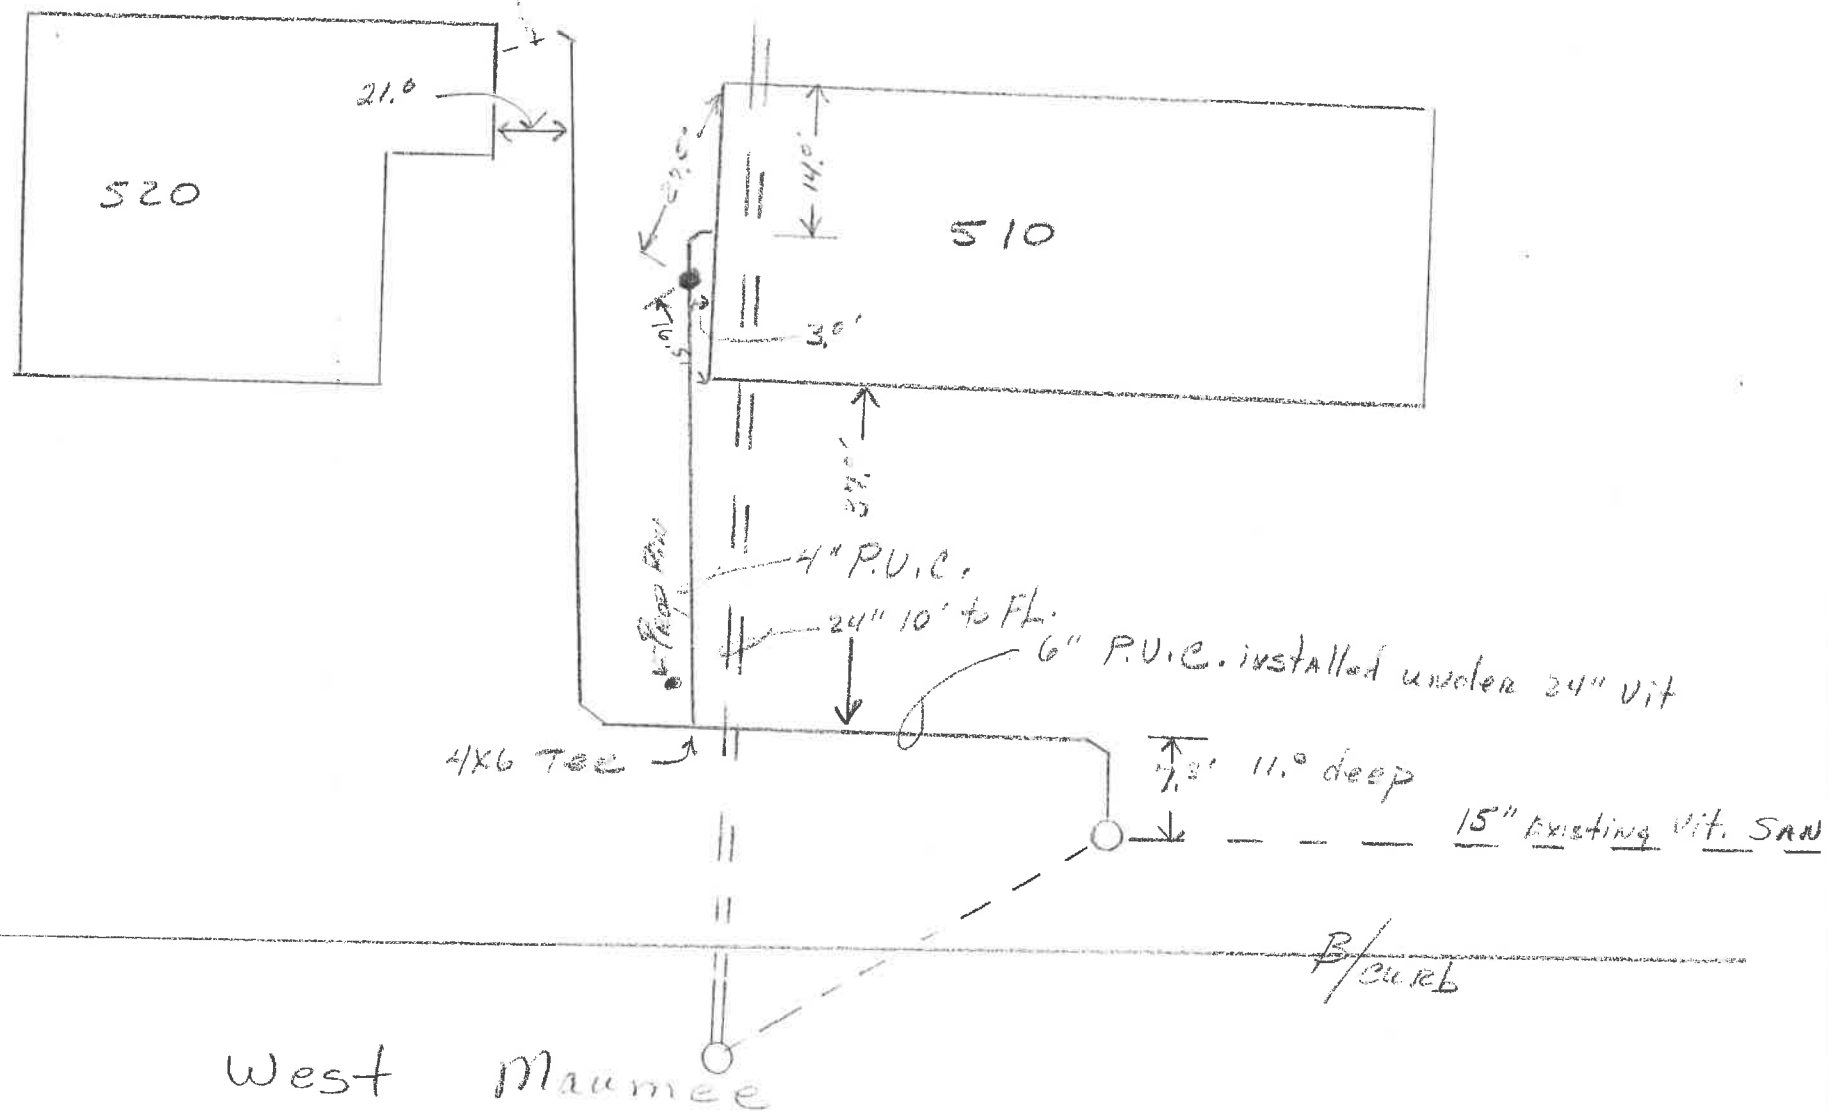 21.0
520
14.0'
510
3.0'
4" P.V.C.
24" 10' to FL.
6" P.V.C. installed under 24" Vit
4x6 Tee
7.3' 11.0 deep
15" Existing Vit. SAN
B/curb
West Maumee